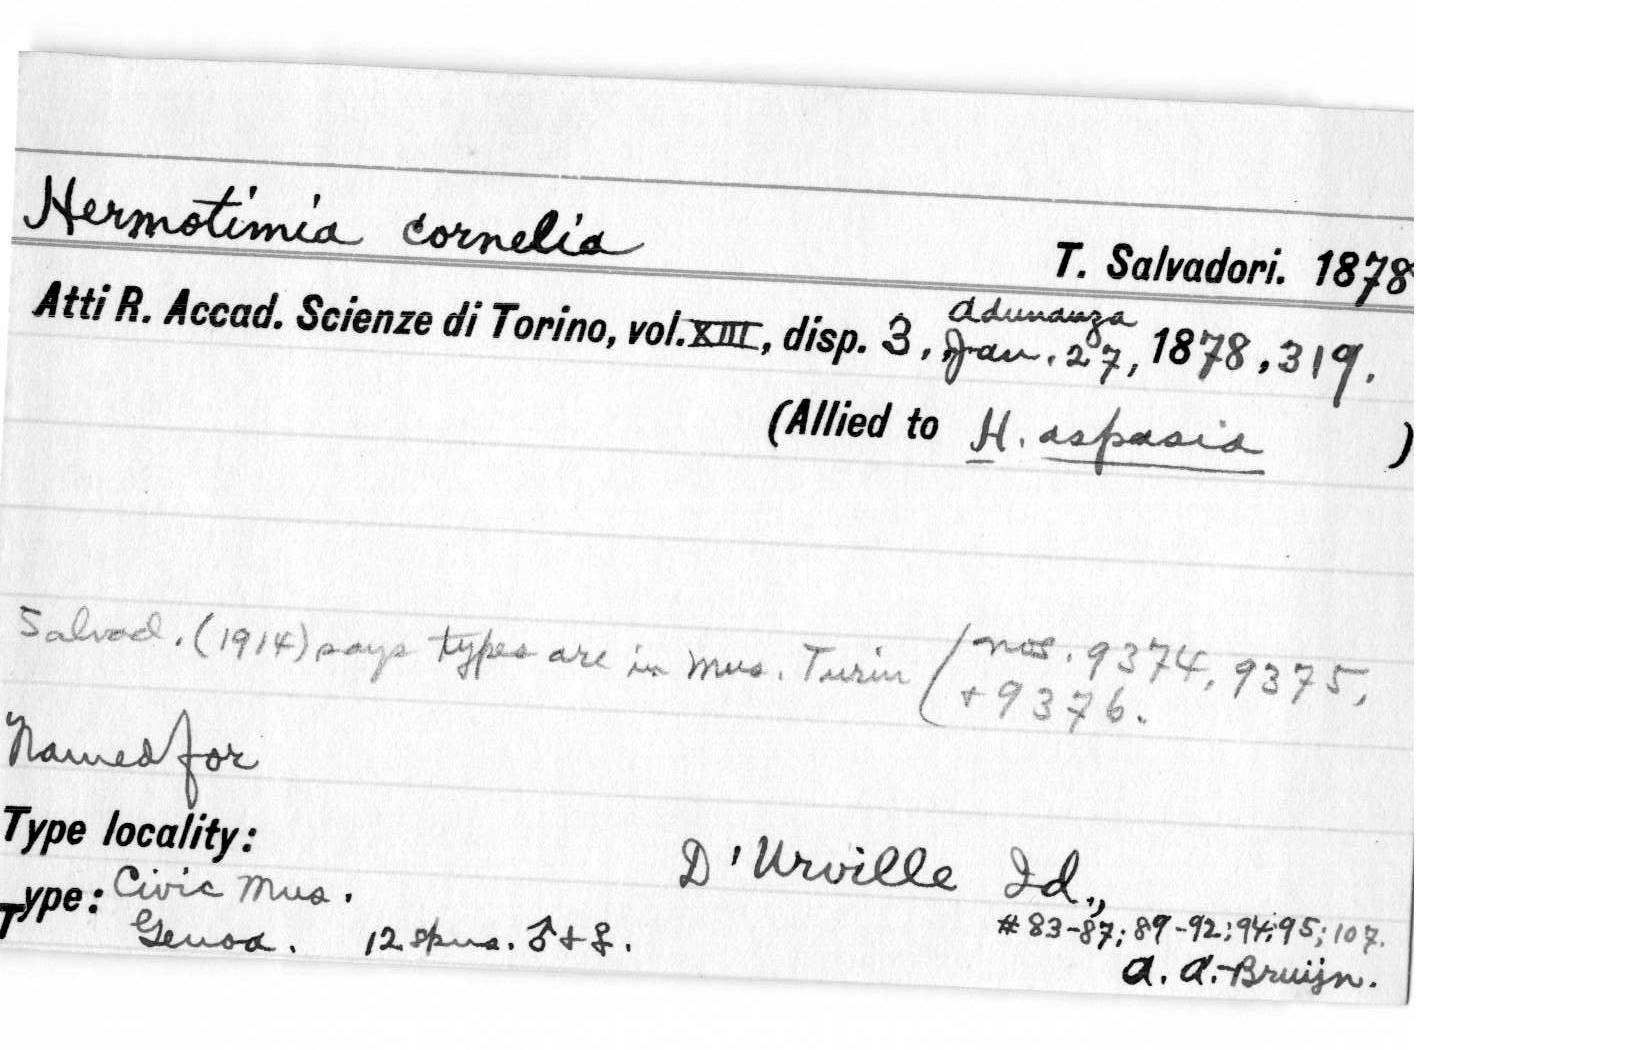 Hermotimia cornelia
T. Salvadori. 1878
Atti R. Accad. Scienze di Torino, vol. XIII, disp. 3, Adunanza Jan. 27, 1878, 319.
(Allied to H. aspasia )
Salvad. (1914) says types are in Mus. Turin (nos. 9374, 9375,
+ 9376.
Named for
Type locality:
D'Urville Id.,
Type: Civic Mus.
Genoa. 12 spms. ♂ + ♀.
# 83-87; 89-92; 94; 95; 107.
A. A. Bruijn.